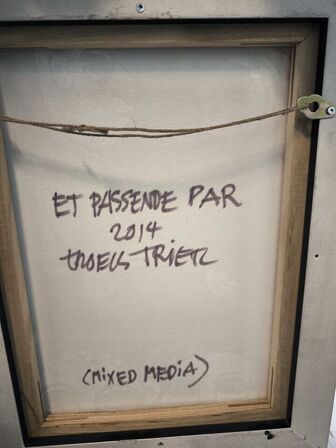 ET PASSENDE PAR
2014
TROELS TRIER
(MIXED MEDIA)